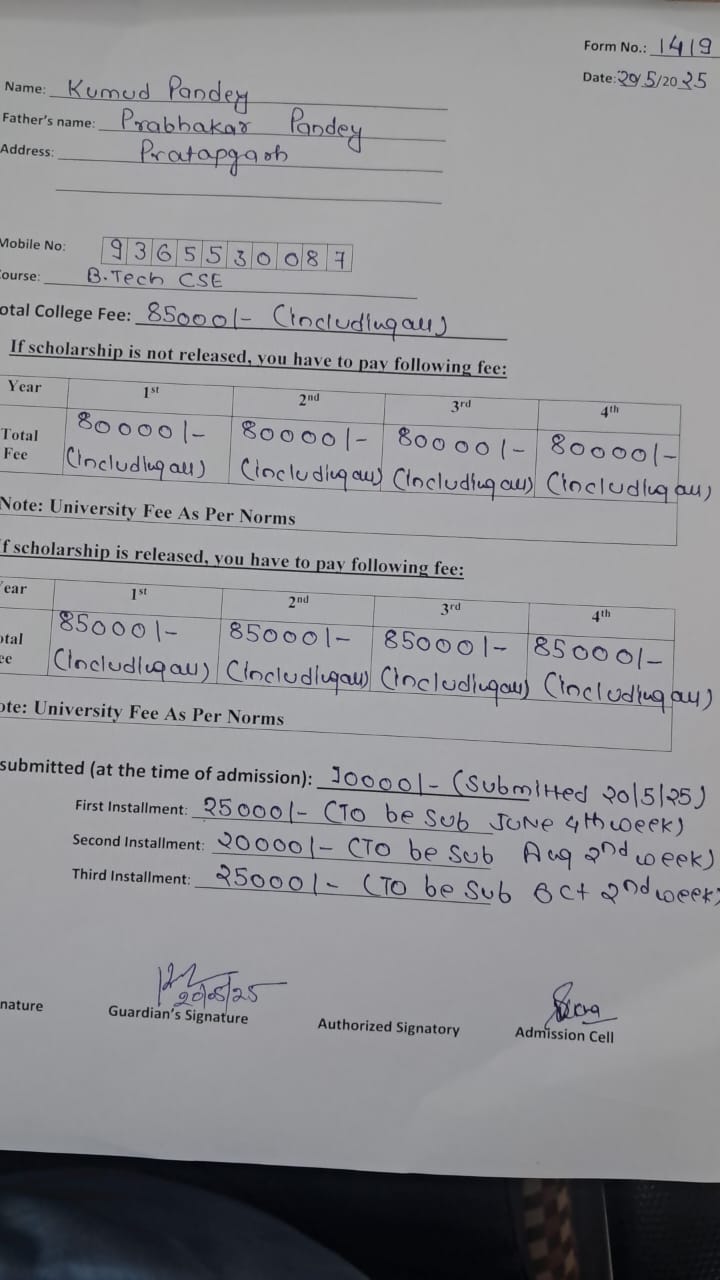 Form No.: 1419
Date: 20/5/2025
Name: Kumud Pandey
Father's name: Prabhakar Pandey
Address: Pratapgarh
Mobile No: 9365530087
ourse: B.Tech CSE
otal College Fee: 85000/- (Including all)
If scholarship is not released, you have to pay following fee:
Year 1st 2nd 3rd 4th
Total Fee 80000/- (Including all) 80000/- (Including all) 80000/- (Including all) 80000/- (Including all)
Note: University Fee As Per Norms
f scholarship is released, you have to pay following fee:
ear 1st 2nd 3rd 4th
otal ee 85000/- (Including all) 85000/- (Including all) 85000/- (Including all) 85000/- (Including all)
ote: University Fee As Per Norms
submitted (at the time of admission): 10000/- (Submitted 20/5/25)
First Installment: 25000/- (To be sub June 4th week)
Second Installment: 20000/- (To be sub Aug 2nd week)
Third Installment: 25000/- (To be sub Oct 2nd week)
20/05/25
nature Guardian's Signature Authorized Signatory Admission Cell